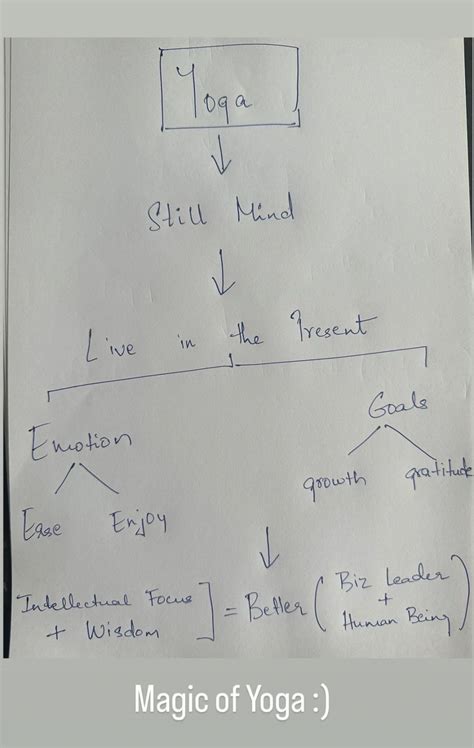 Yoga
Still Mind
Live in the Present
Emotion
Goals
Ease Enjoy
growth gratitude
Intellectual Focus
+ Wisdom
] = Better (
Biz Leader
+
Human Being
)
Magic of Yoga :)